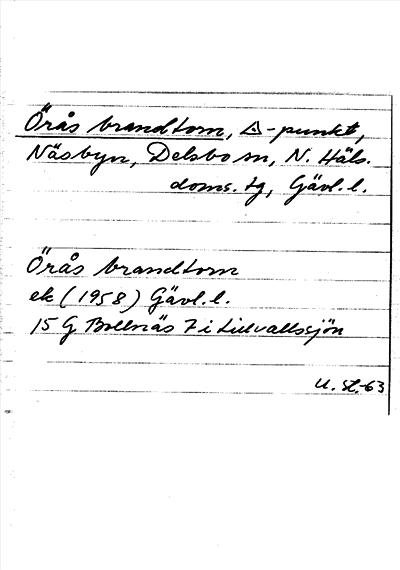 Örås brandtorn, △-punkt,
Näsbyn, Delsbo sn, N. Häls.
doms. tg, Gävl. l.
Örås brandtorn
ek (1958) Gävl. l.
15 G Bollnäs 7 i Lillvallssjön
U. St.-63